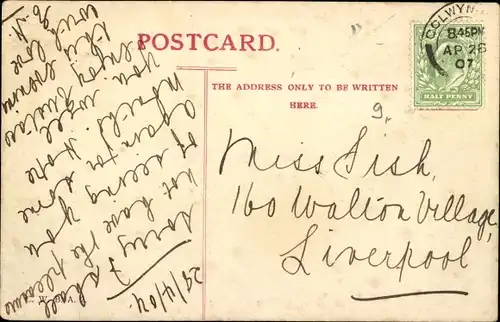 POSTCARD.
THE ADDRESS ONLY TO BE WRITTEN
HERE.
COLWYN
8.45PM
AP 26
07
HALF PENNY
9.
Miss Fish,
160 Walton Village,
Liverpool
29/4/07.
Sorry I shall
not have the pleasure
of seeing you
again for some
weeks. Hope
you will
enjoy
this evening
with love